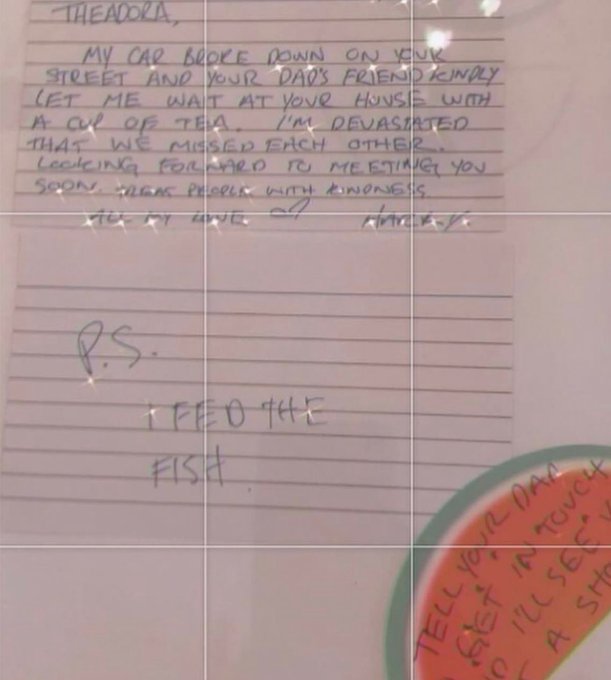 THEADORA,
MY CAR BROKE DOWN ON YOUR
STREET AND YOUR DAD'S FRIEND KINDLY
LET ME WAIT AT YOUR HOUSE WITH
A CUP OF TEA. I'M DEVASTATED
THAT WE MISSED EACH OTHER.
LOOKING FORWARD TO MEETING YOU
SOON. TREAT PEOPLE WITH KINDNESS
ALL MY LOVE HARRY.
P.S.
I FED THE
FISH.
TELL YOUR DAD
GET IN TOUCH
I'LL SEE
A